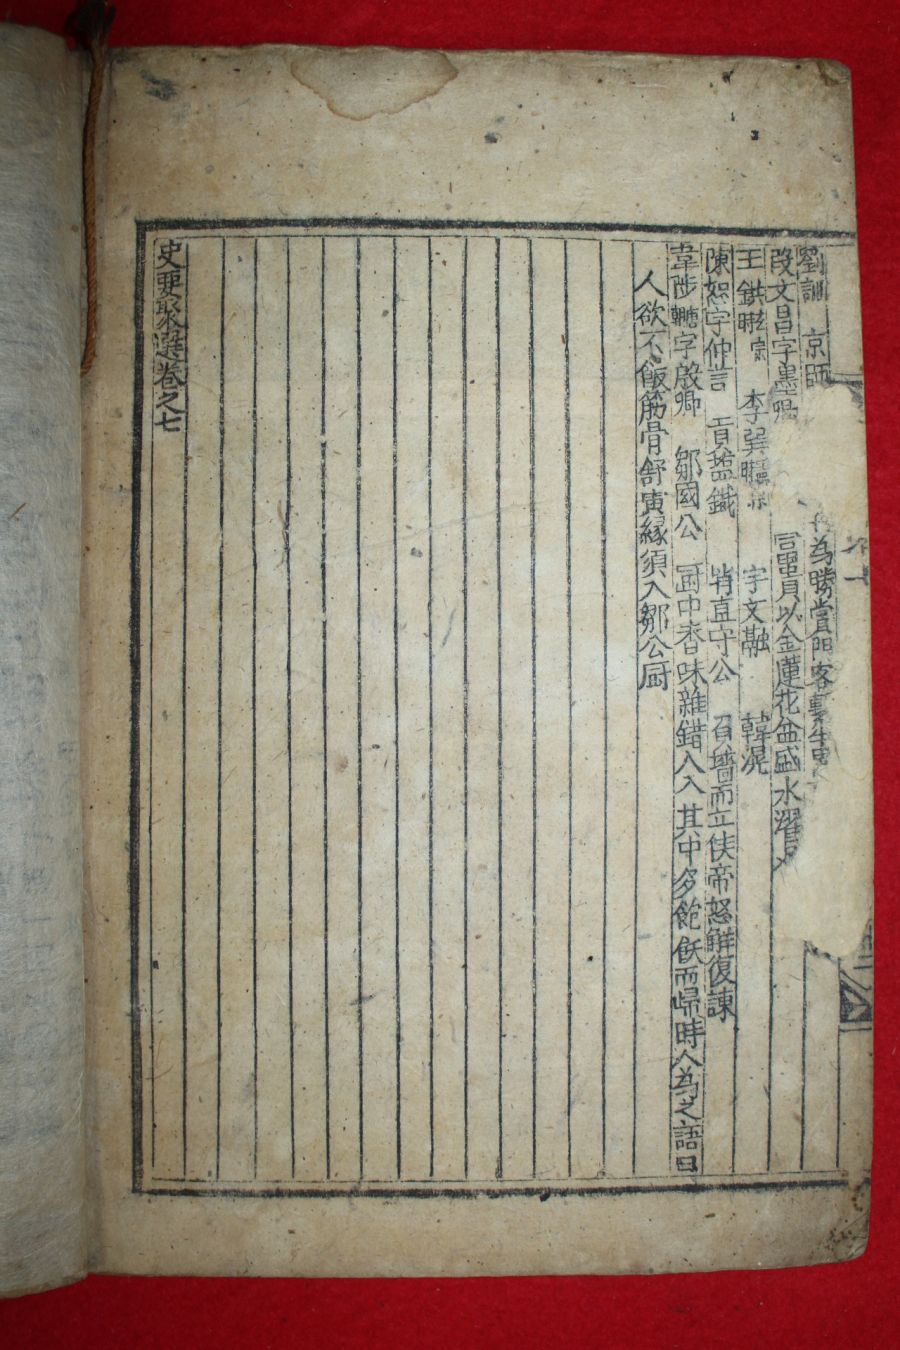 劉訓 京師 為勝賞門客
段文昌字墨卿 富貴以金蓮花盆盛水濯
王鉷 李巽 宇文融 韓滉
陳恕字仲言 貢塩鐵 肖直守公 負墻而立俟帝怒觧復諌
韋陟字殷卿 鄒國公 㕑中香味雜錯人入其中多飽飫而㱕時人為之語曰
人欲不飯筋骨舒夤縁須入鄒公㕑
史要聚選卷之七